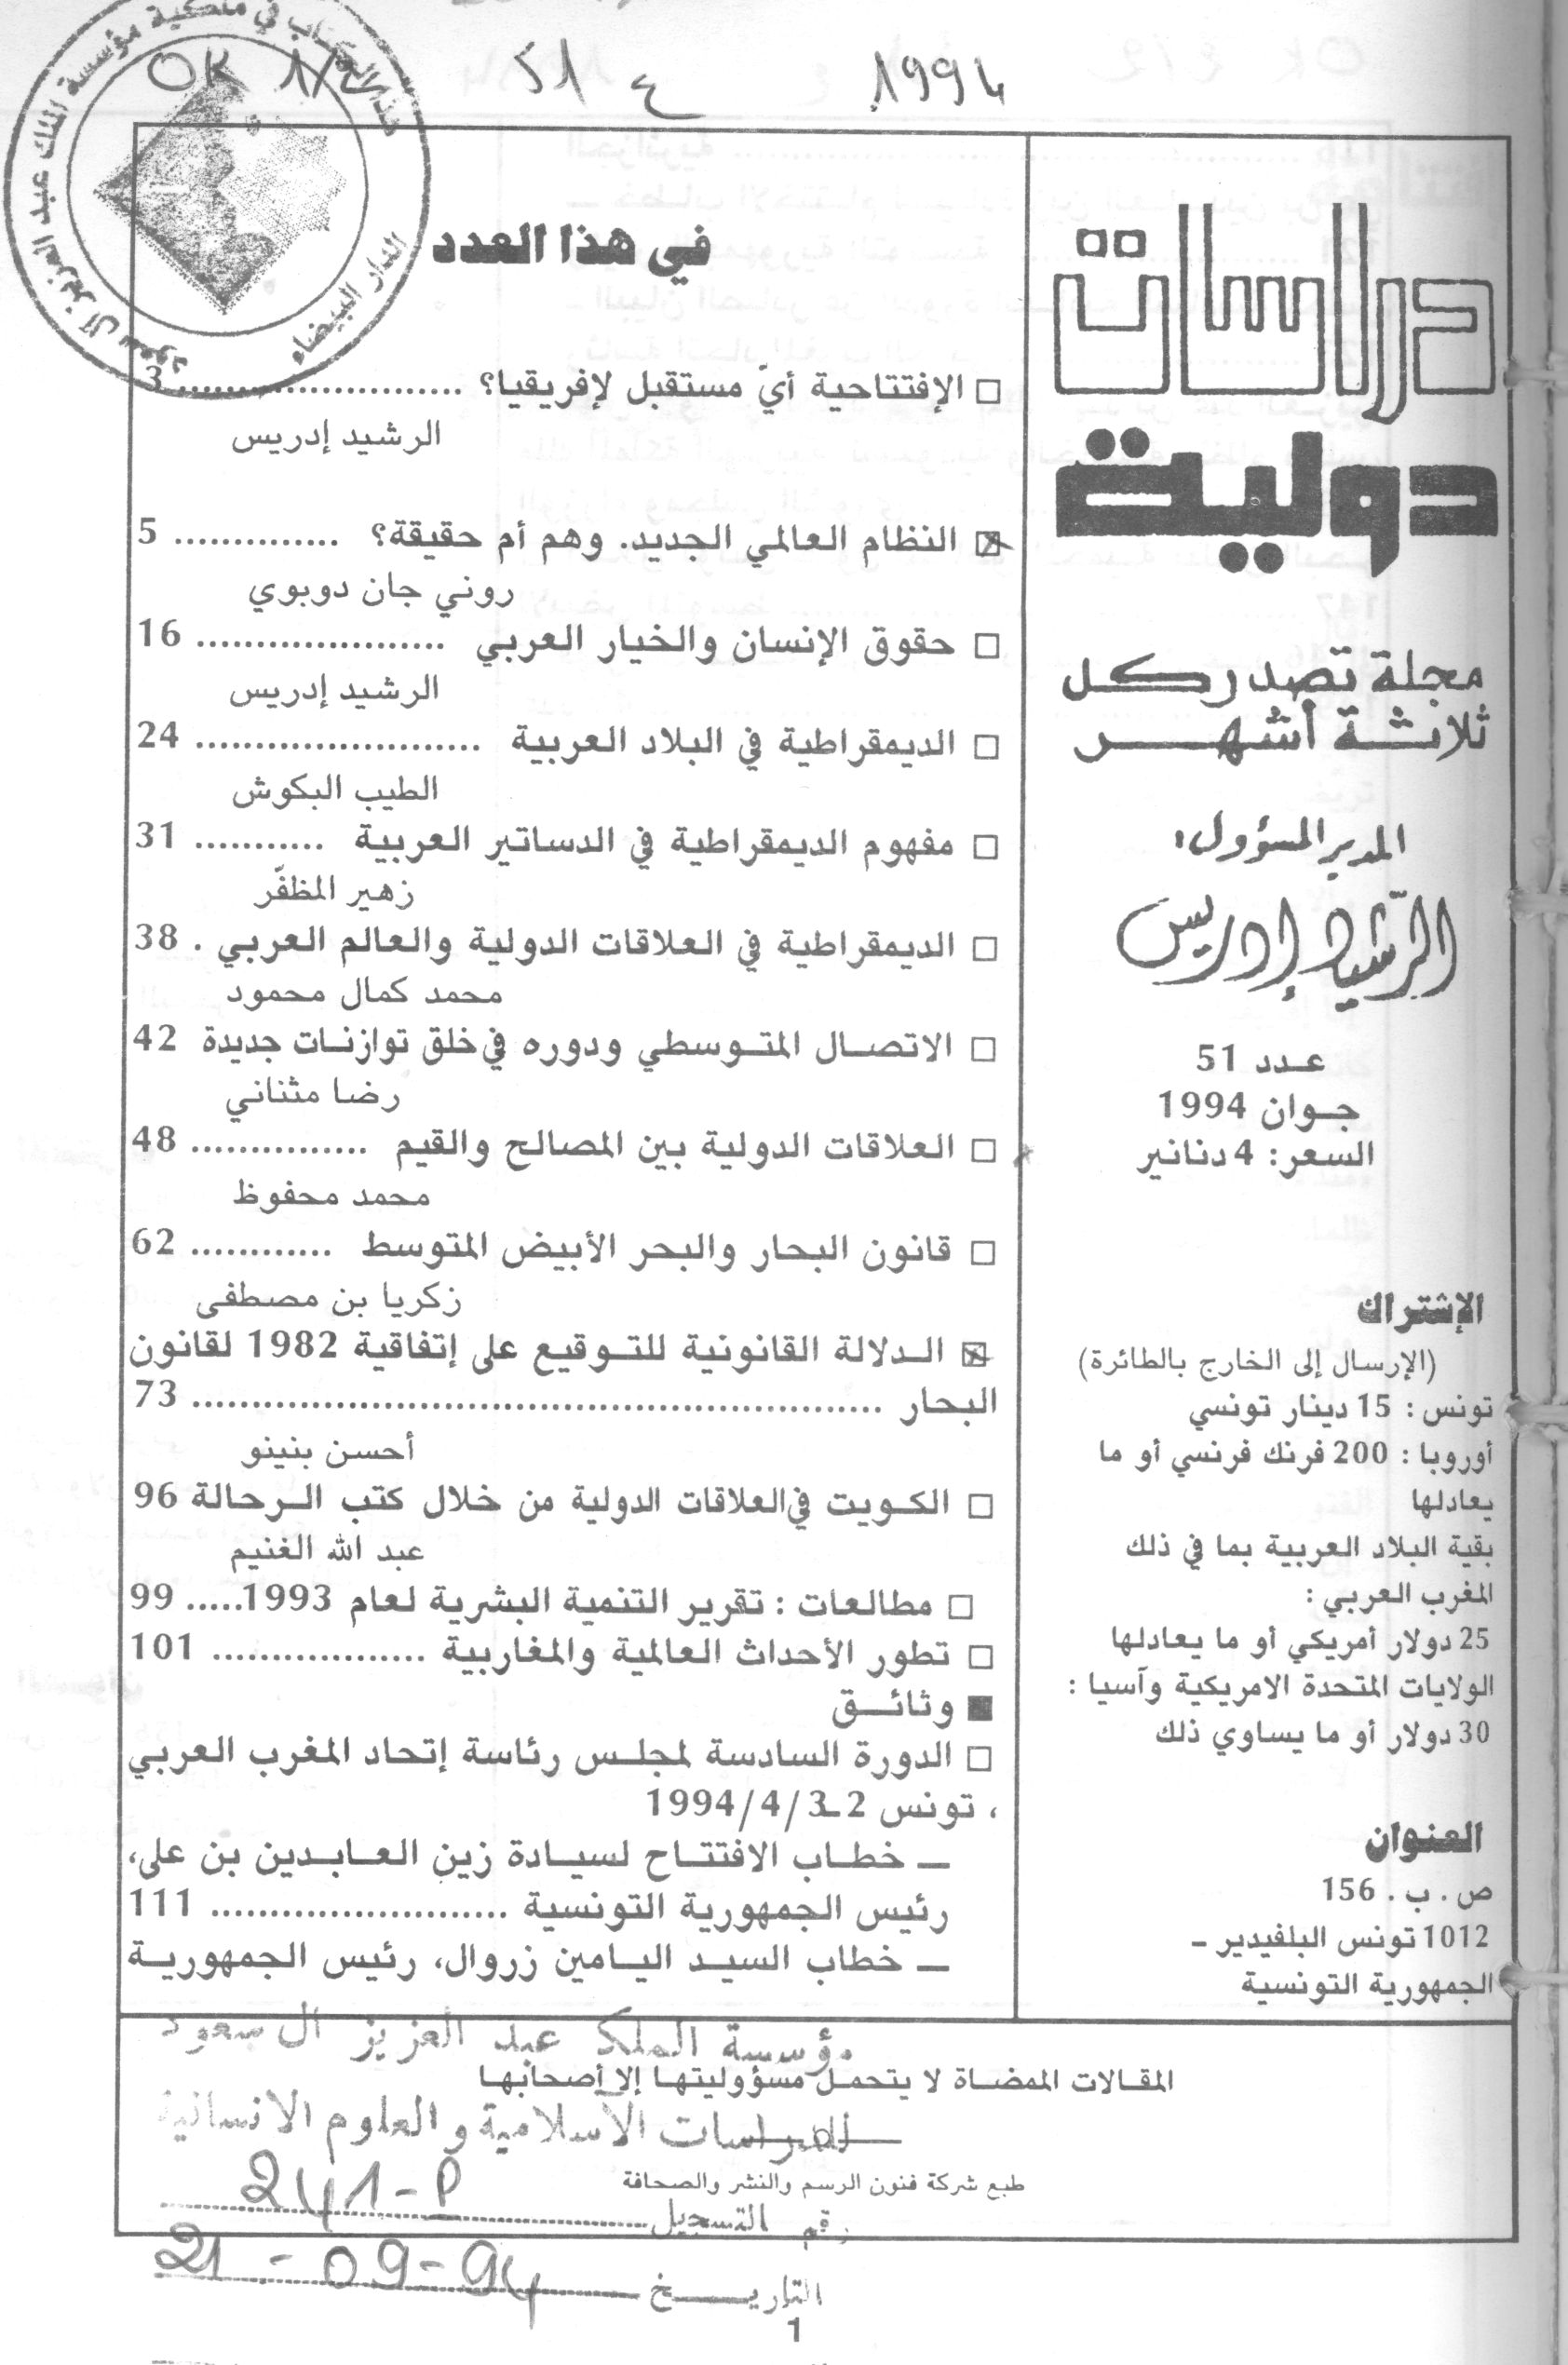 1994
ع 51
OK
هذا الكتاب في ملكية مؤسسة الملك عبد العزيز آل سعود
الدار البيضاء
دراسات
دولية
مجلة تصدر كل
ثلاثة أشهر
المدير المسؤول:
الرّشيد إدريس
عدد 51
جوان 1994
السعر: 4 دنانير
الإشتراك
(الإرسال إلى الخارج بالطائرة)
تونس : 15 دينار تونسي
أوروبا : 200 فرنك فرنسي أو ما
يعادلها
بقية البلاد العربية بما في ذلك
المغرب العربي :
25 دولار أمريكي أو ما يعادلها
الولايات المتحدة الامريكية وآسيا :
30 دولار أو ما يساوي ذلك
العنوان
ص . ب . 156
1012 تونس البلفيدير ـ
الجمهورية التونسية
في هذا العدد
□ الإفتتاحية أيّ مستقبل لإفريقيا؟ ........................ 3
الرشيد إدريس
☒ النظام العالمي الجديد. وهم أم حقيقة؟ .............. 5
روني جان دوبوي
□ حقوق الإنسان والخيار العربي ..................... 16
الرشيد إدريس
□ الديمقراطية في البلاد العربية ........................ 24
الطيب البكوش
□ مفهوم الديمقراطية في الدساتير العربية ........... 31
زهير المظفّر
□ الديمقراطية في العلاقات الدولية والعالم العربي . 38
محمد كمال محمود
□ الاتصال المتوسطي ودوره في خلق توازنات جديدة 42
رضا مثناني
□ العلاقات الدولية بين المصالح والقيم ............... 48
محمد محفوظ
□ قانون البحار والبحر الأبيض المتوسط ............ 62
زكريا بن مصطفى
☒ الدلالة القانونية للتوقيع على إتفاقية 1982 لقانون
البحار .......................................................... 73
أحسن بنينو
□ الكويت في العلاقات الدولية من خلال كتب الرحالة 96
عبد الله الغنيم
□ مطالعات : تقرير التنمية البشرية لعام 1993..... 99
□ تطور الأحداث العالمية والمغاربية .................. 101
■ وثائق
□ الدورة السادسة لمجلس رئاسة إتحاد المغرب العربي
، تونس 2ـ3/4/1994
ـ خطاب الافتتاح لسيادة زين العابدين بن علي،
رئيس الجمهورية التونسية ......................... 111
ـ خطاب السيد اليامين زروال، رئيس الجمهورية
مؤسسة الملك عبد العزيز آل سعود
المقالات الممضاة لا يتحمل مسؤوليتها إلا أصحابها
للدراسات الاسلامية والعلوم الانسانية
طبع شركة فنون الرسم والنشر والصحافة
رقم التسجيل 241-P
التاريخ 21-09-94
1